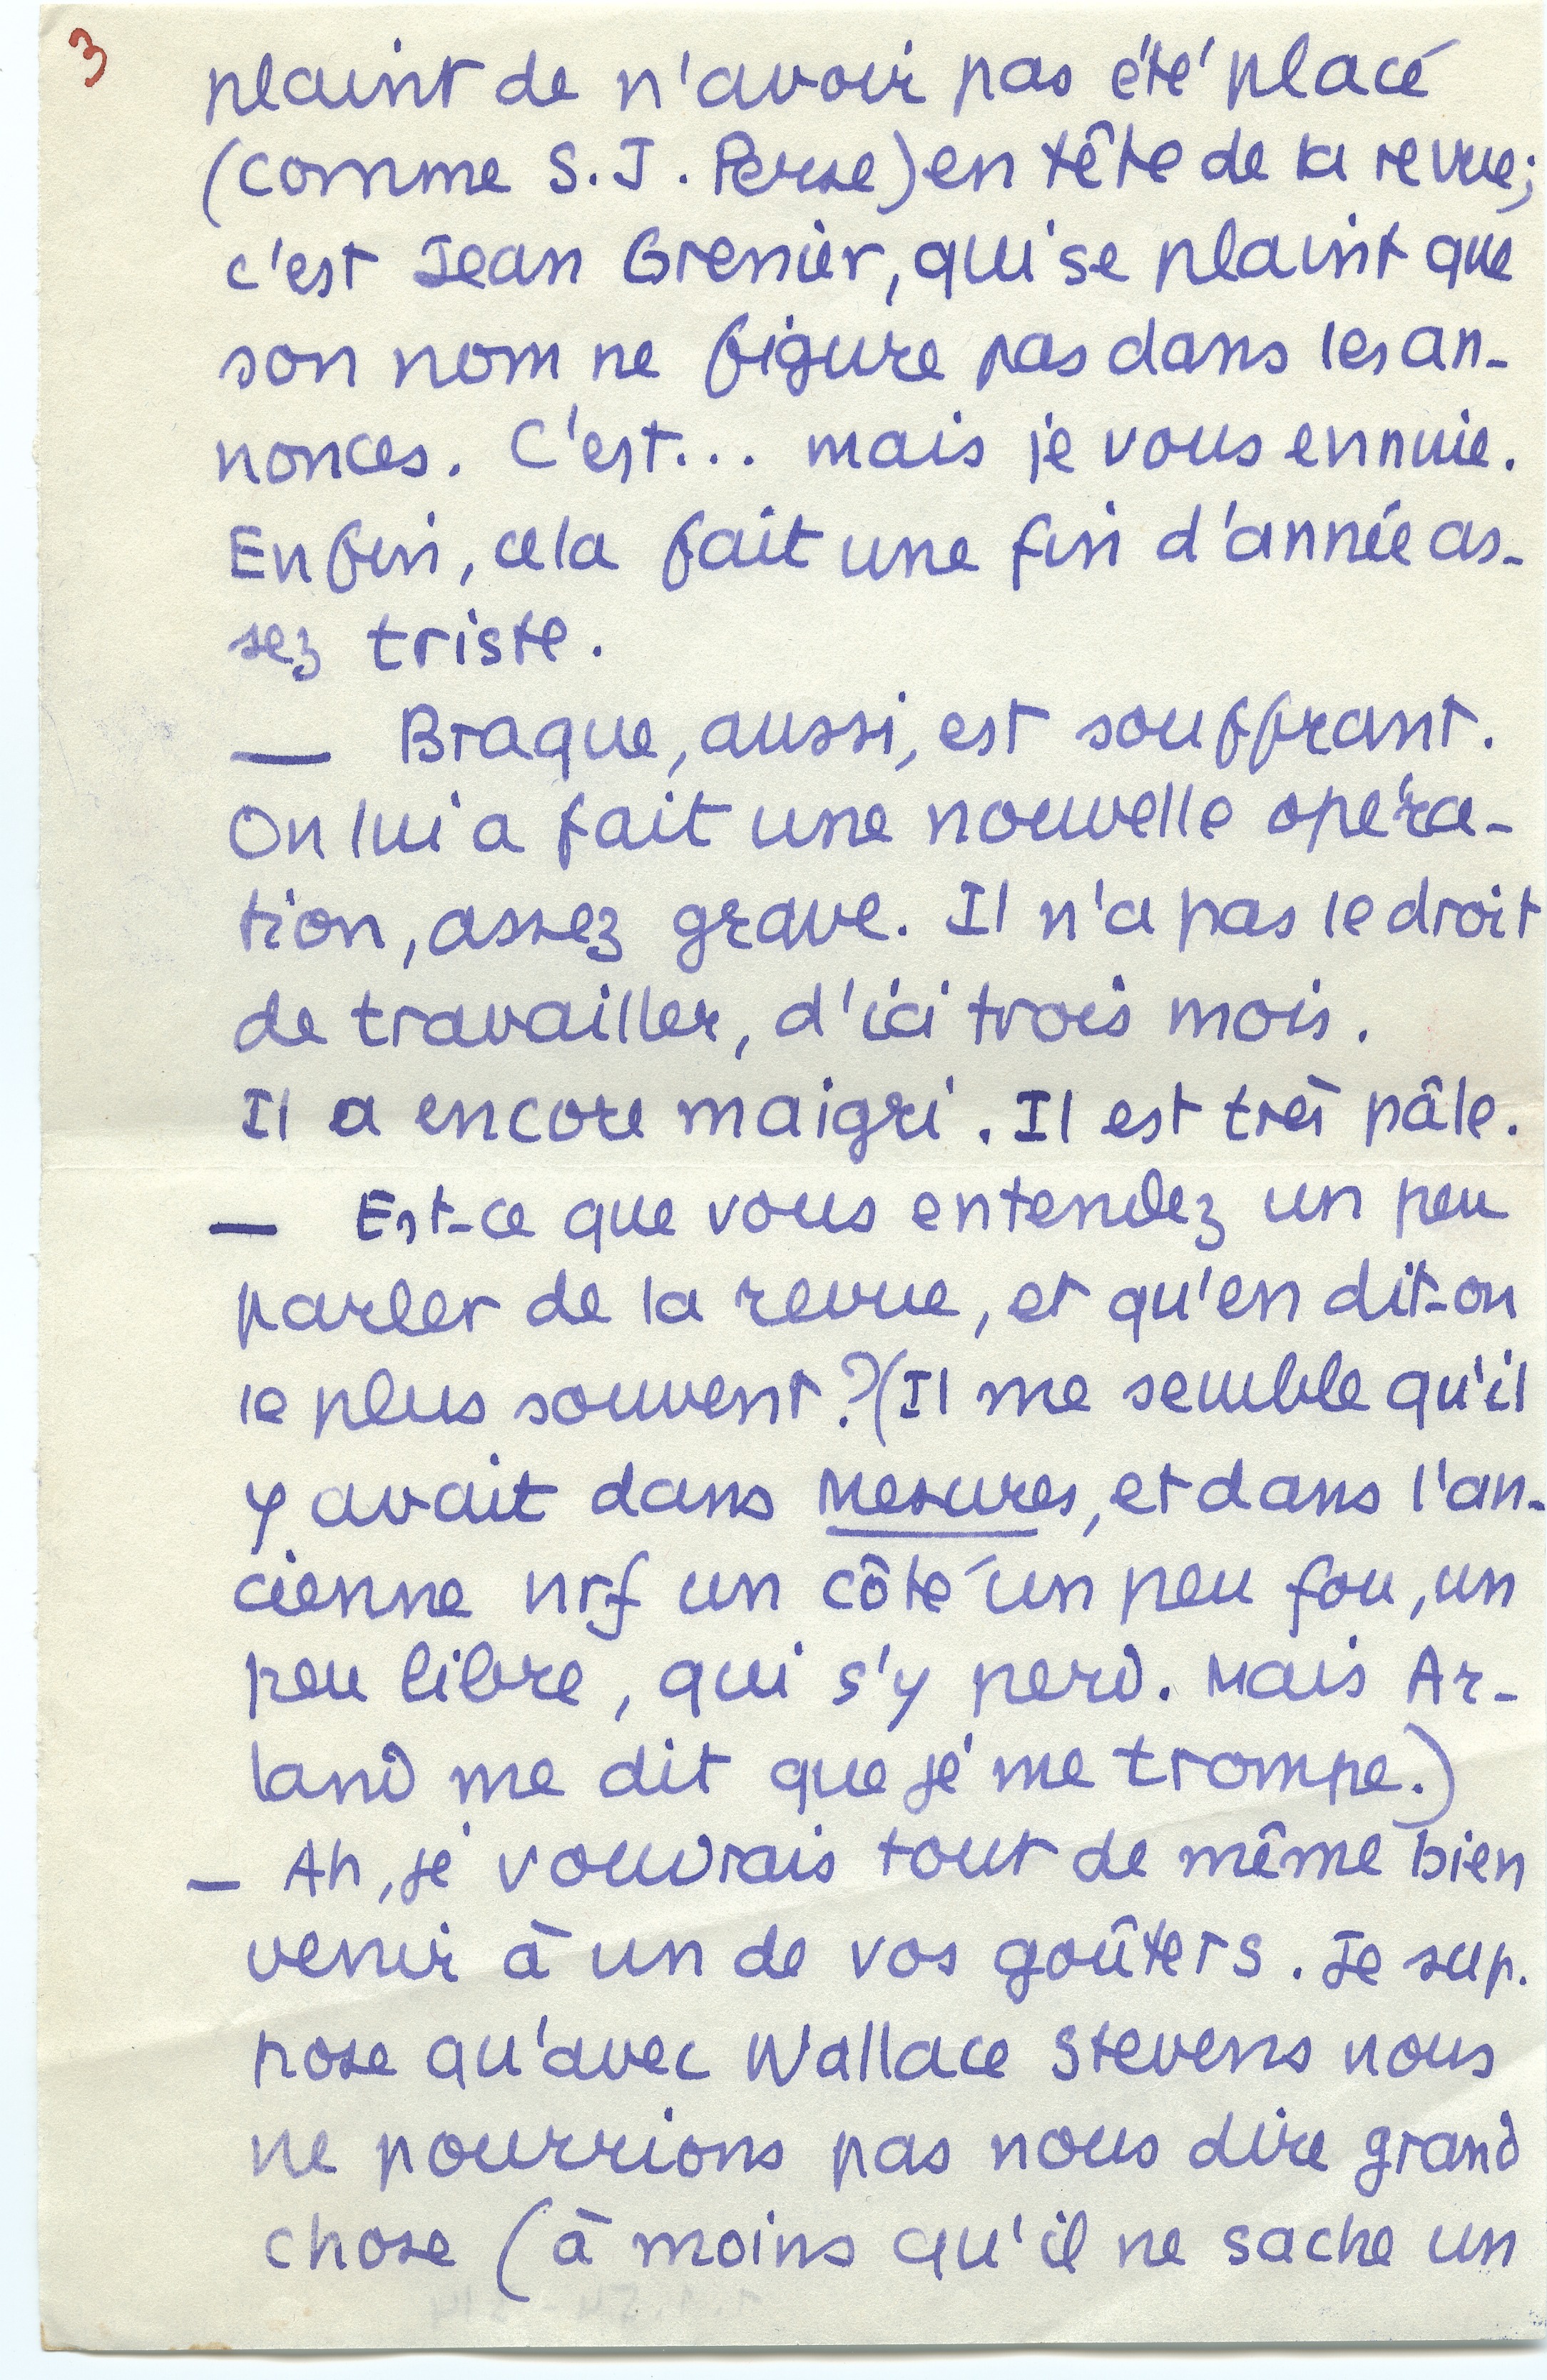 3
plaint de n'avoir pas été placé
(comme S.J. Perse) en tête de la revue;
c'est Jean Grenier, qui se plaint que
son nom ne figure pas dans les an-
nonces. C'est... mais je vous ennuie.
Enfin, cela fait une fin d'année as-
sez triste.
— Braque, aussi, est souffrant.
On lui a fait une nouvelle opéra-
tion, assez grave. Il n'a pas le droit
de travailler, d'ici trois mois.
Il a encore maigri. Il est très pâle.
— Est-ce que vous entendez un peu
parler de la revue, et qu'en dit-on
le plus souvent? (Il me semble qu'il
y avait dans Mesures, et dans l'an-
cienne nrf un côté un peu fou, un
peu libre, qui s'y perd. Mais Ar-
land me dit que je me trompe.)
— Ah, je voudrais tout de même bien
venir à un de vos goûters. Je sup-
pose qu'avec Wallace Stevens nous
ne pourrions pas nous dire grand
chose (à moins qu'il ne sache un